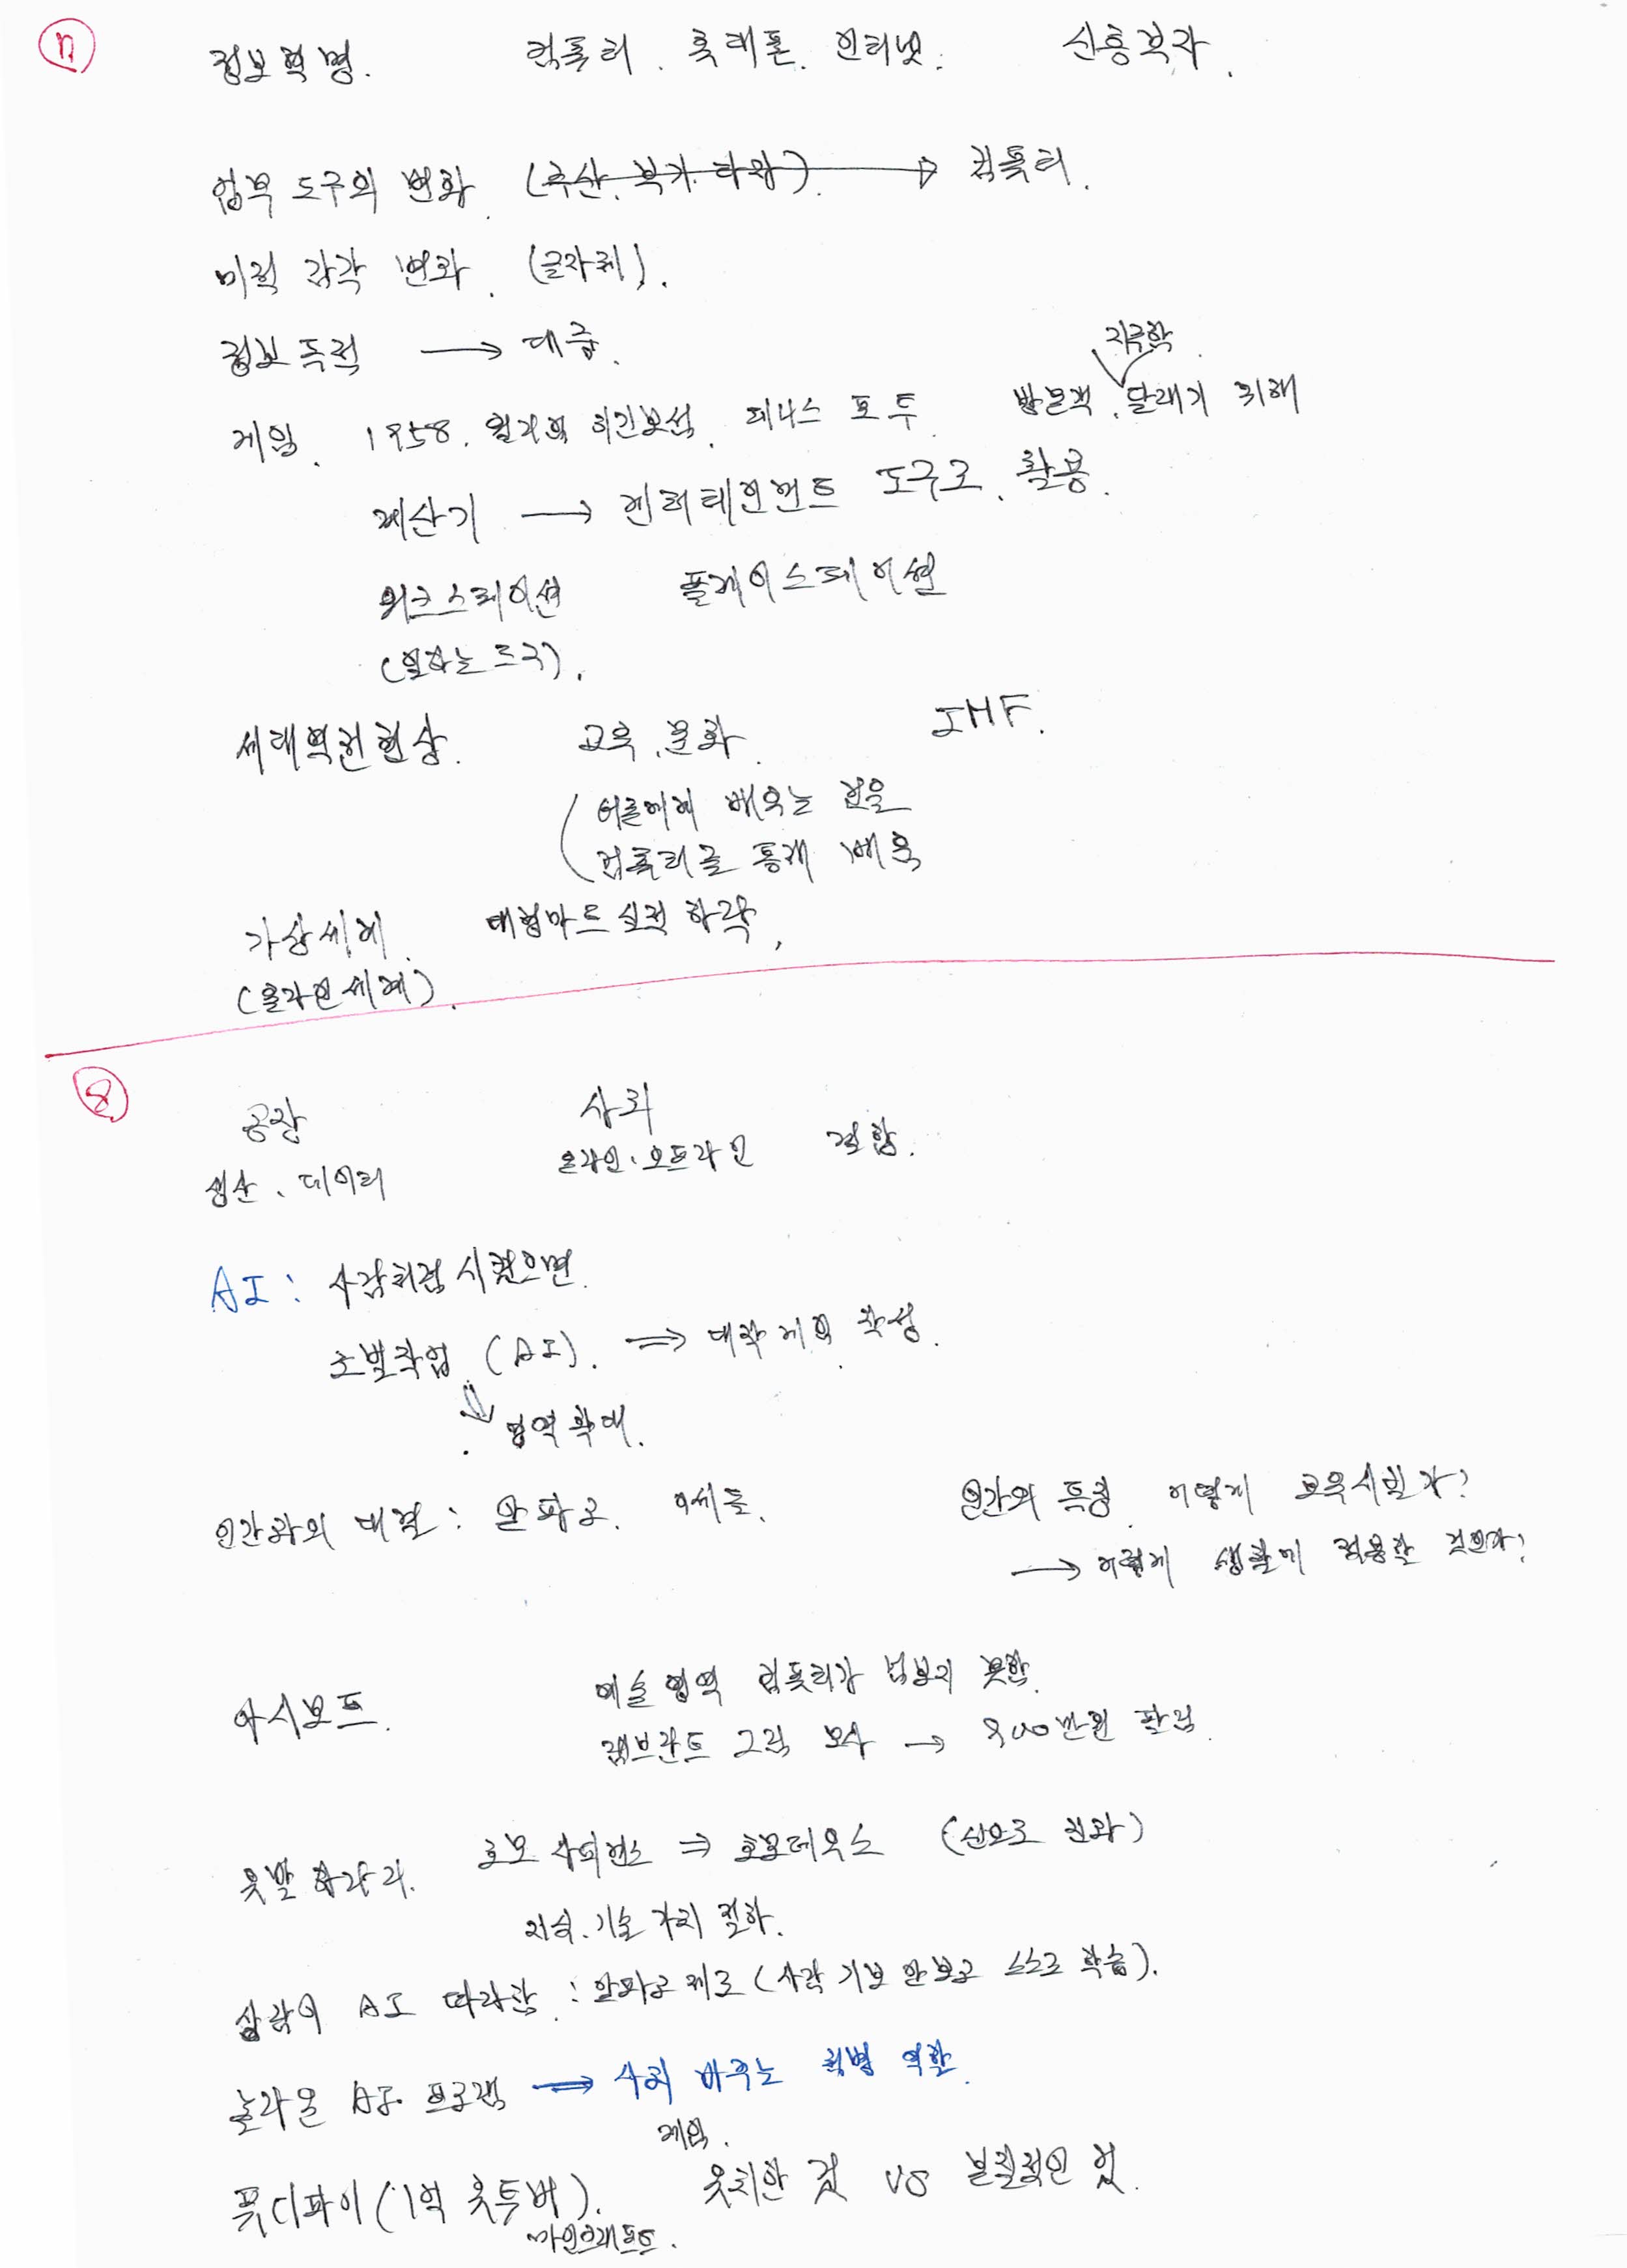 7
정보혁명. 컴퓨터. 휴대폰. 인터넷. 신흥부자.
업무 도구의 변화. (주산. 부기. 타자). → 컴퓨터.
미적 감각 변화. (글자체).
정보독점 → 대중.
지루한.
게임. 1958. 윌리엄 히긴보섬. 테니스 포 투. 방문객. 달래기 위해
계산기 → 엔터테인먼트 도구로. 활용.
워크스테이션 플레이스테이션
(일하는 도구).
세대역전현상. 교육. 문화. IMF.
어른에게 배우는 것을
컴퓨터를 통해 배움
가상세계. 대형마트 실적 하락,
(온라인세계).
8
공장 사회
생산. 데이터 온라인. 오프라인 결합.
AI: 사람처럼 시켰으면.
초벌작업 (AI). ⇒ 대학 계획 작성.
⇓ 영역확대.
인간과의 대결: 알파고. 이세돌. 인간의 특징. 어떻게 교육시킬까?
→ 어떻게 생활에 적용할 것인가?
아시모프. 예술영역 컴퓨터가 넘보지 못함.
렘브란트 그림 모사 → 900만원 판매.
유발 하라리. 호모 사피엔스 ⇒ 호모데우스 (신으로 진화)
지식. 기술 가치 절하.
사람이 AI 따라감: 알파고 제로 (사람 기보 안보고 스스로 학습).
놀라운 AI. 프로그램 → 사회 바꾸는 혁명 역할.
게임.
퓨디파이(1억 유투버). 유치한 것 vs 본질적인 것.
마인크래프트.